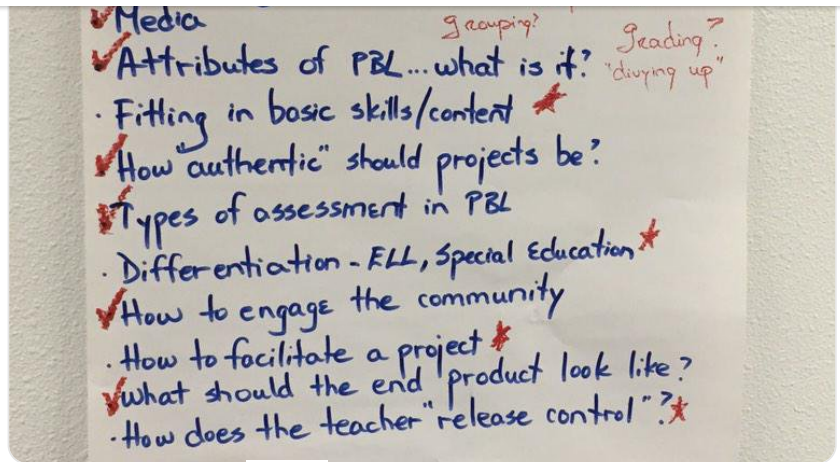 Media
grouping?
Grading?
"divying up"
Attributes of PBL...what is it?
· Fitting in basic skills/content
How "authentic" should projects be?
Types of assessment in PBL
· Differentiation - ELL, Special Education
How to engage the community
· How to facilitate a project
What should the end product look like?
· How does the teacher "release control"?